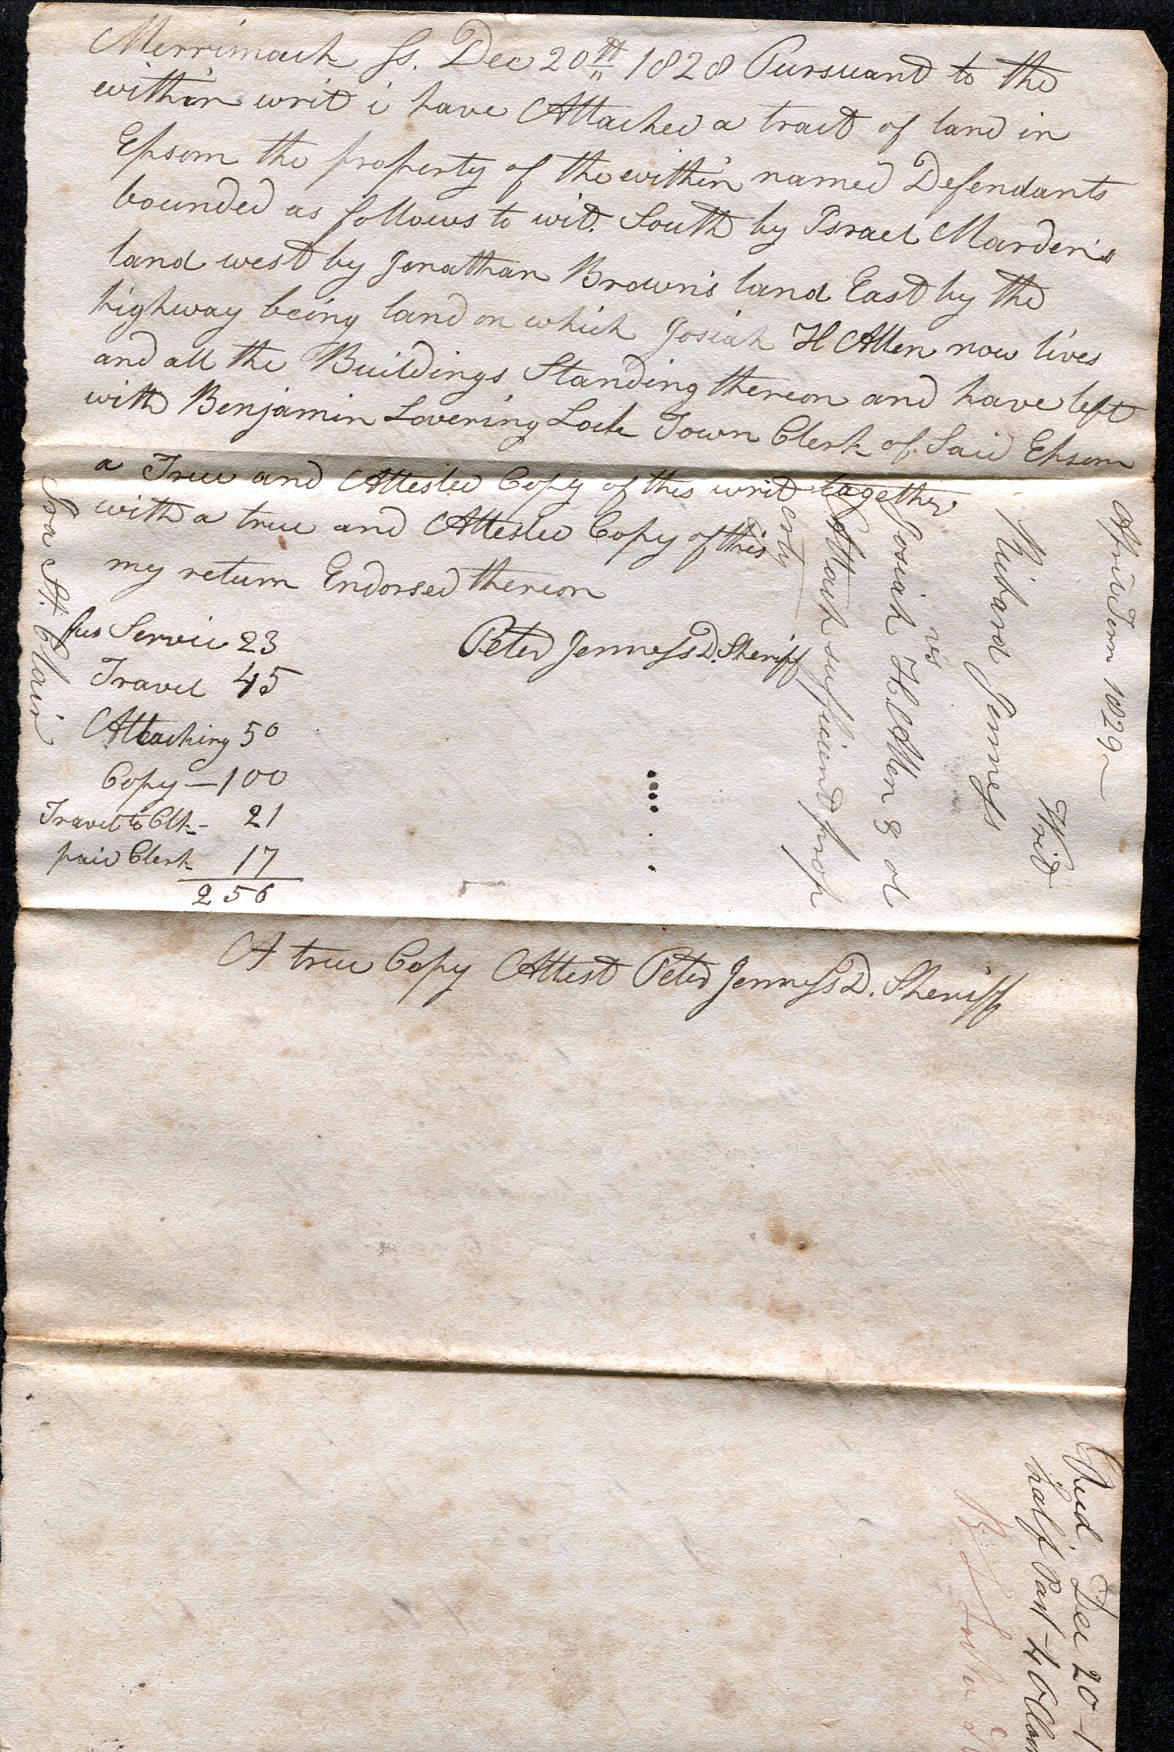 Merrimack Ss. Dec 20th 1828 Pursuant to the
within writ i have Attached a tract of land in
Epsom the property of the within named Defendants
bounded as follows to wit. South by Israel Marden's
land west by Jonathan Brown's land East by the
highway being land on which Josiah H Allen now lives
and all the Buildings Standing thereon and have left
with Benjamin Lovering Lock Town Clerk of Said Epsom
a True and Attested Copy of this writ together
with a true and Attested Copy of this
my return Endorsed thereon
Peter Jenness D. Sheriff
fees Servic 23
Travel 45
Attaching 50
Copy — 100
Travel to Clk - 21
paid Clerk 17
256
A true Copy Attest Peter Jenness D. Sheriff
April Term 1829 —
Writ
Richard Jenness
vs
Josiah H. Allen & al
Attach sufficient prop
erty
St. Clair
Dec 20 - 1
half Past 4 Oclo